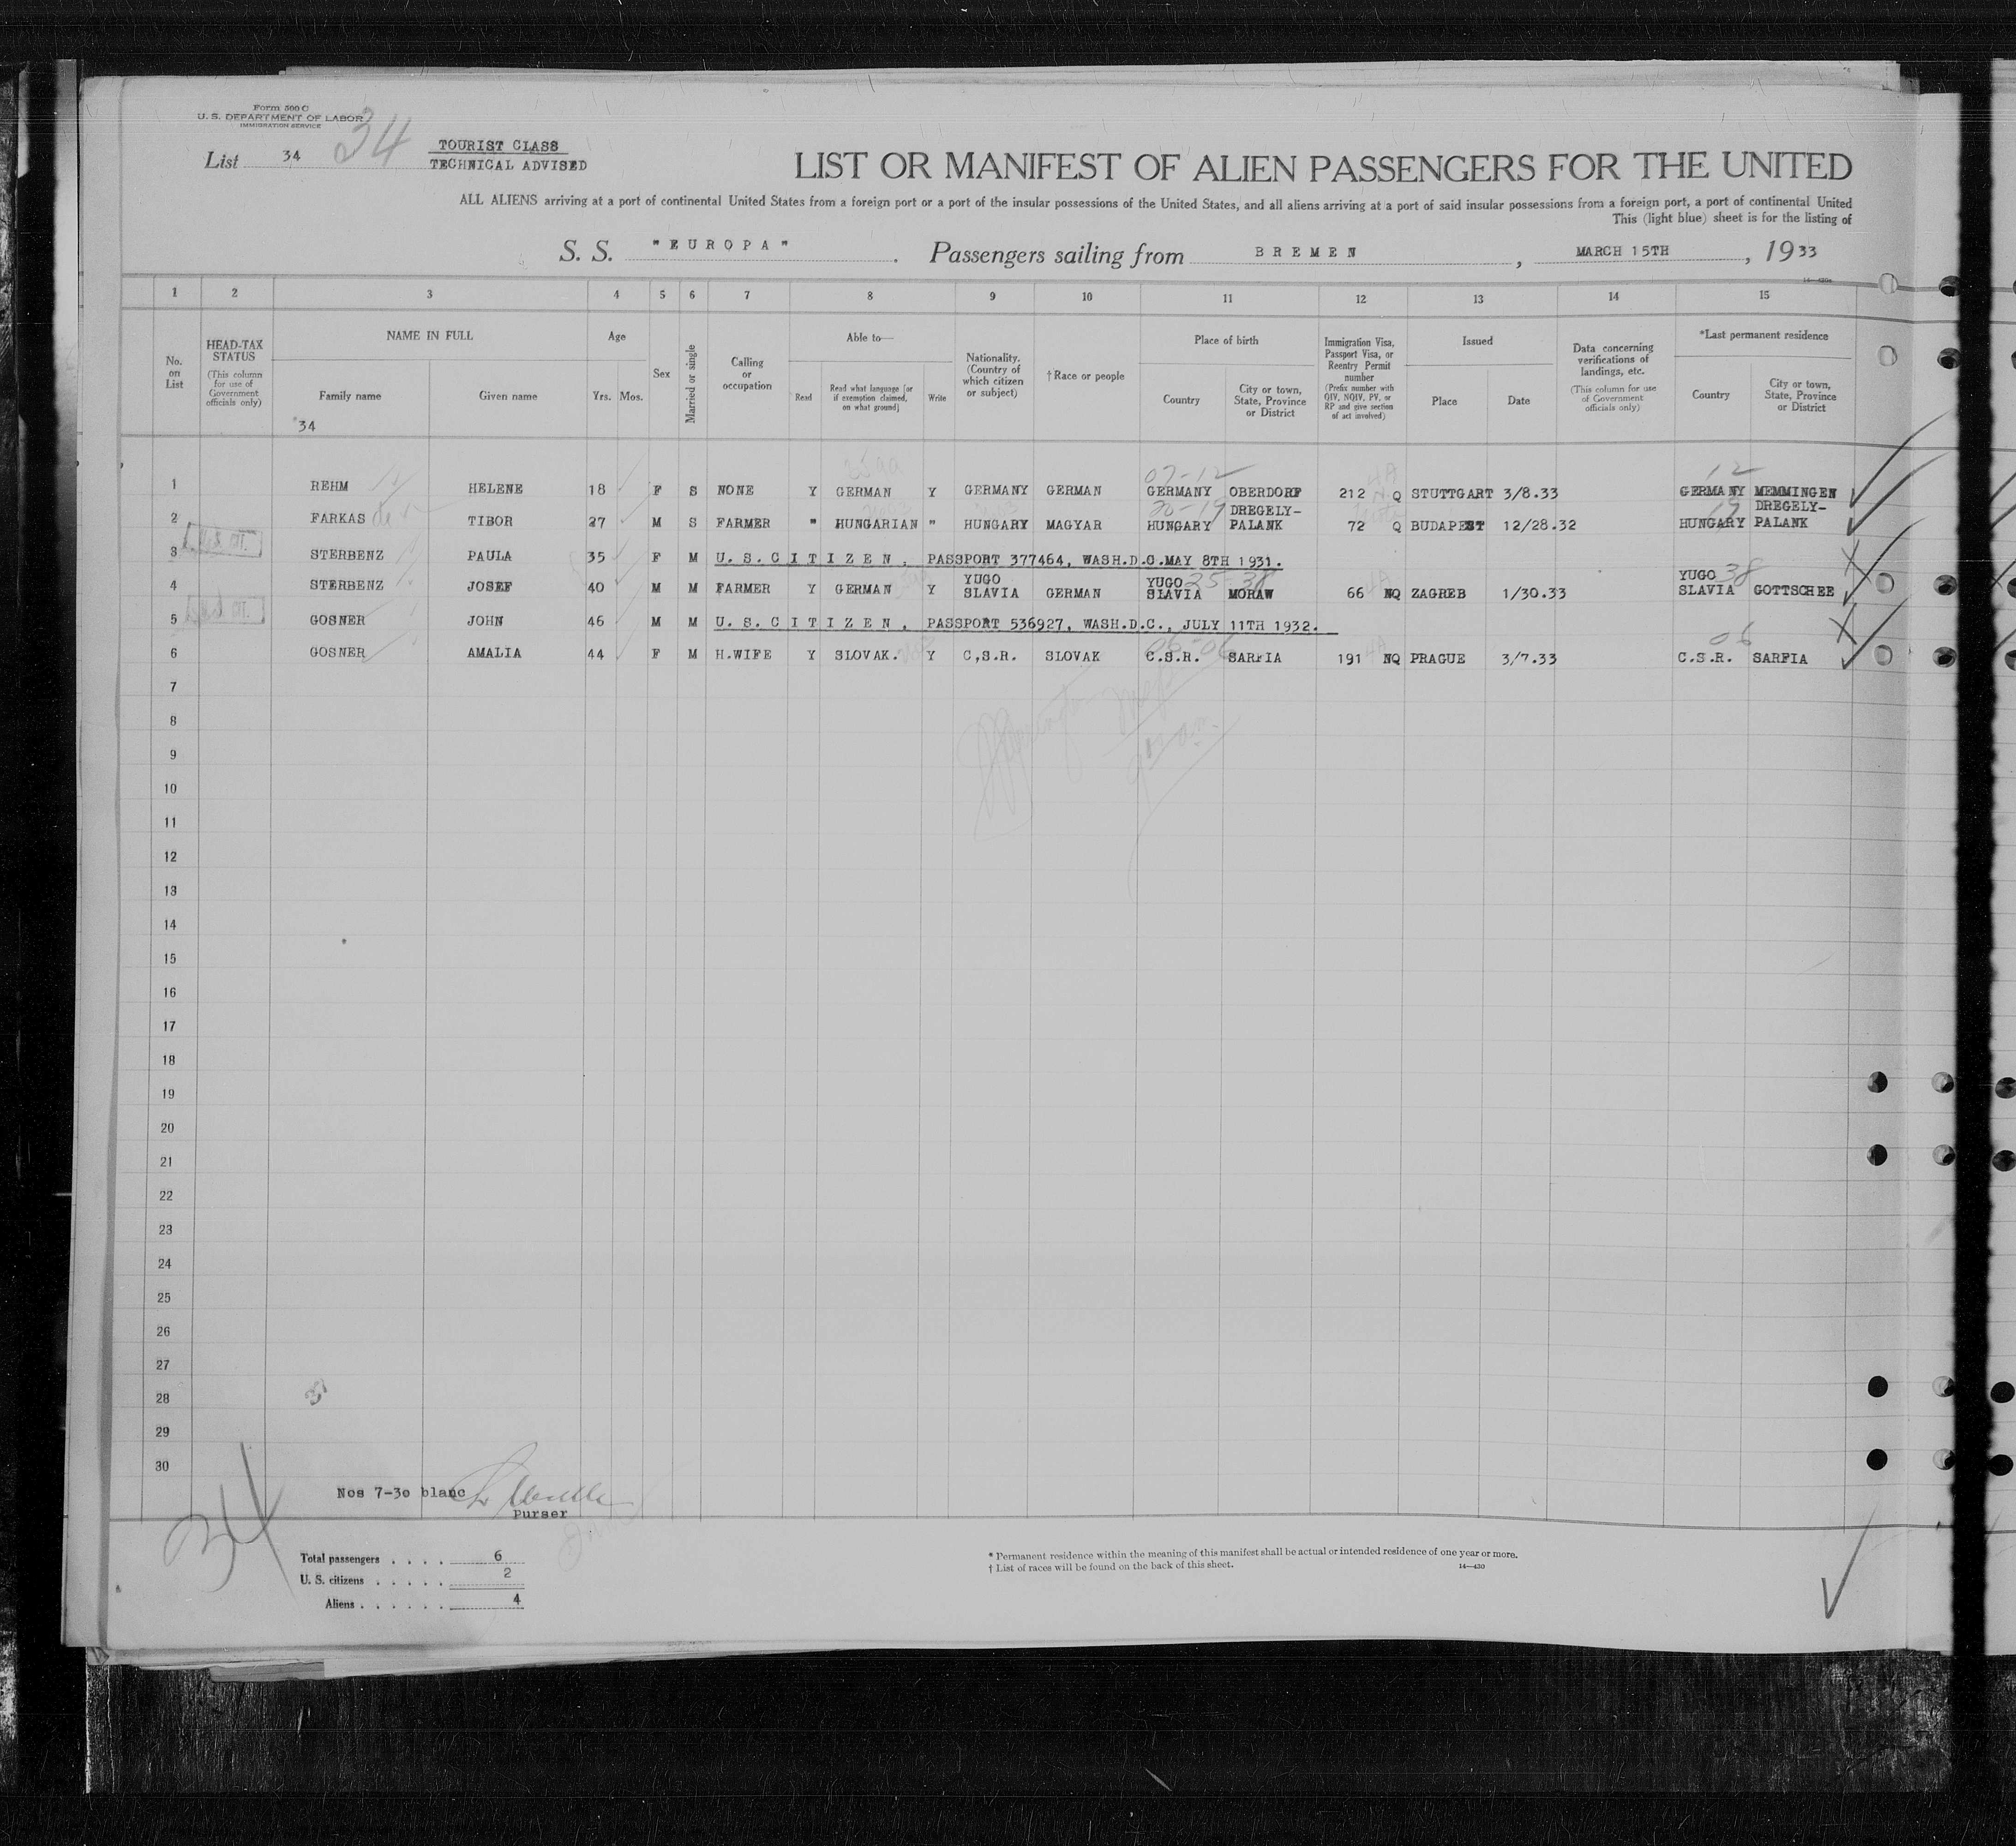 Form 500 C
U. S. DEPARTMENT OF LABOR
IMMIGRATION SERVICE
34
List 34
TOURIST CLASS
TECHNICAL ADVISED
LIST OR MANIFEST OF ALIEN PASSENGERS FOR THE UNITED
ALL ALIENS arriving at a port of continental United States from a foreign port or a port of the insular possessions of the United States, and all aliens arriving at a port of said insular possessions from a foreign port, a port of continental United
This (light blue) sheet is for the listing of
S. S. "EUROPA". Passengers sailing from BREMEN, MARCH 15TH, 1933
1 2 3 4 5 6 7 8 9 10 11 12 13 14 15
No. on List
HEAD-TAX STATUS (This column for use of Government officials only)
NAME IN FULL
Family name
Given name
Age
Yrs. Mos.
Sex
Married or single
Calling or occupation
Able to—
Read
Read what language [or if exemption claimed, on what ground]
Write
Nationality. (Country of which citizen or subject)
† Race or people
Place of birth
Country
City or town, State, Province or District
Immigration Visa, Passport Visa, or Reentry Permit number (Prefix number with QIV, NQIV, PV, or RP and give section of act involved)
Issued
Place
Date
Data concerning verifications of landings, etc. (This column for use of Government officials only)
*Last permanent residence
Country
City or town, State, Province or District
34
07-12 12
1 REHM HELENE 18 F S NONE Y GERMAN Y GERMANY GERMAN GERMANY OBERDORF 212 Q STUTTGART 3/8.33 GERMANY MEMMINGEN
20-19 19
2 FARKAS TIBOR 27 M S FARMER " HUNGARIAN " HUNGARY MAGYAR HUNGARY DREGELY-PALANK 72 Q BUDAPEST 12/28.32 HUNGARY DREGELY-PALANK
3 STERBENZ PAULA 35 F M U.S.CITIZEN, PASSPORT 377464, WASH.D.C.MAY 8TH 1931.
25-38 38
4 STERBENZ JOSEF 40 M M FARMER Y GERMAN Y YUGO SLAVIA GERMAN YUGO SLAVIA MORAW 66 NQ ZAGREB 1/30.33 YUGO SLAVIA GOTTSCHEE
5 GOSNER JOHN 46 M M U.S.CITIZEN, PASSPORT 536927, WASH.D.C., JULY 11TH 1932.
06-06 06
6 GOSNER AMALIA 44 F M H.WIFE Y SLOVAK. Y C,S.R. SLOVAK C.S.R. SARFIA 191 NQ PRAGUE 3/7.33 C.S.R. SARFIA
7
8
9
10
11
12
13
14
15
16
17
18
19
20
21
22
23
24
25
26
27
28
29
30
Nos 7-30 blanc
Purser
34
Total passengers . . . . 6
U. S. citizens . . . . . 2
Aliens . . . . . . 4
* Permanent residence within the meaning of this manifest shall be actual or intended residence of one year or more.
† List of races will be found on the back of this sheet. 14—430